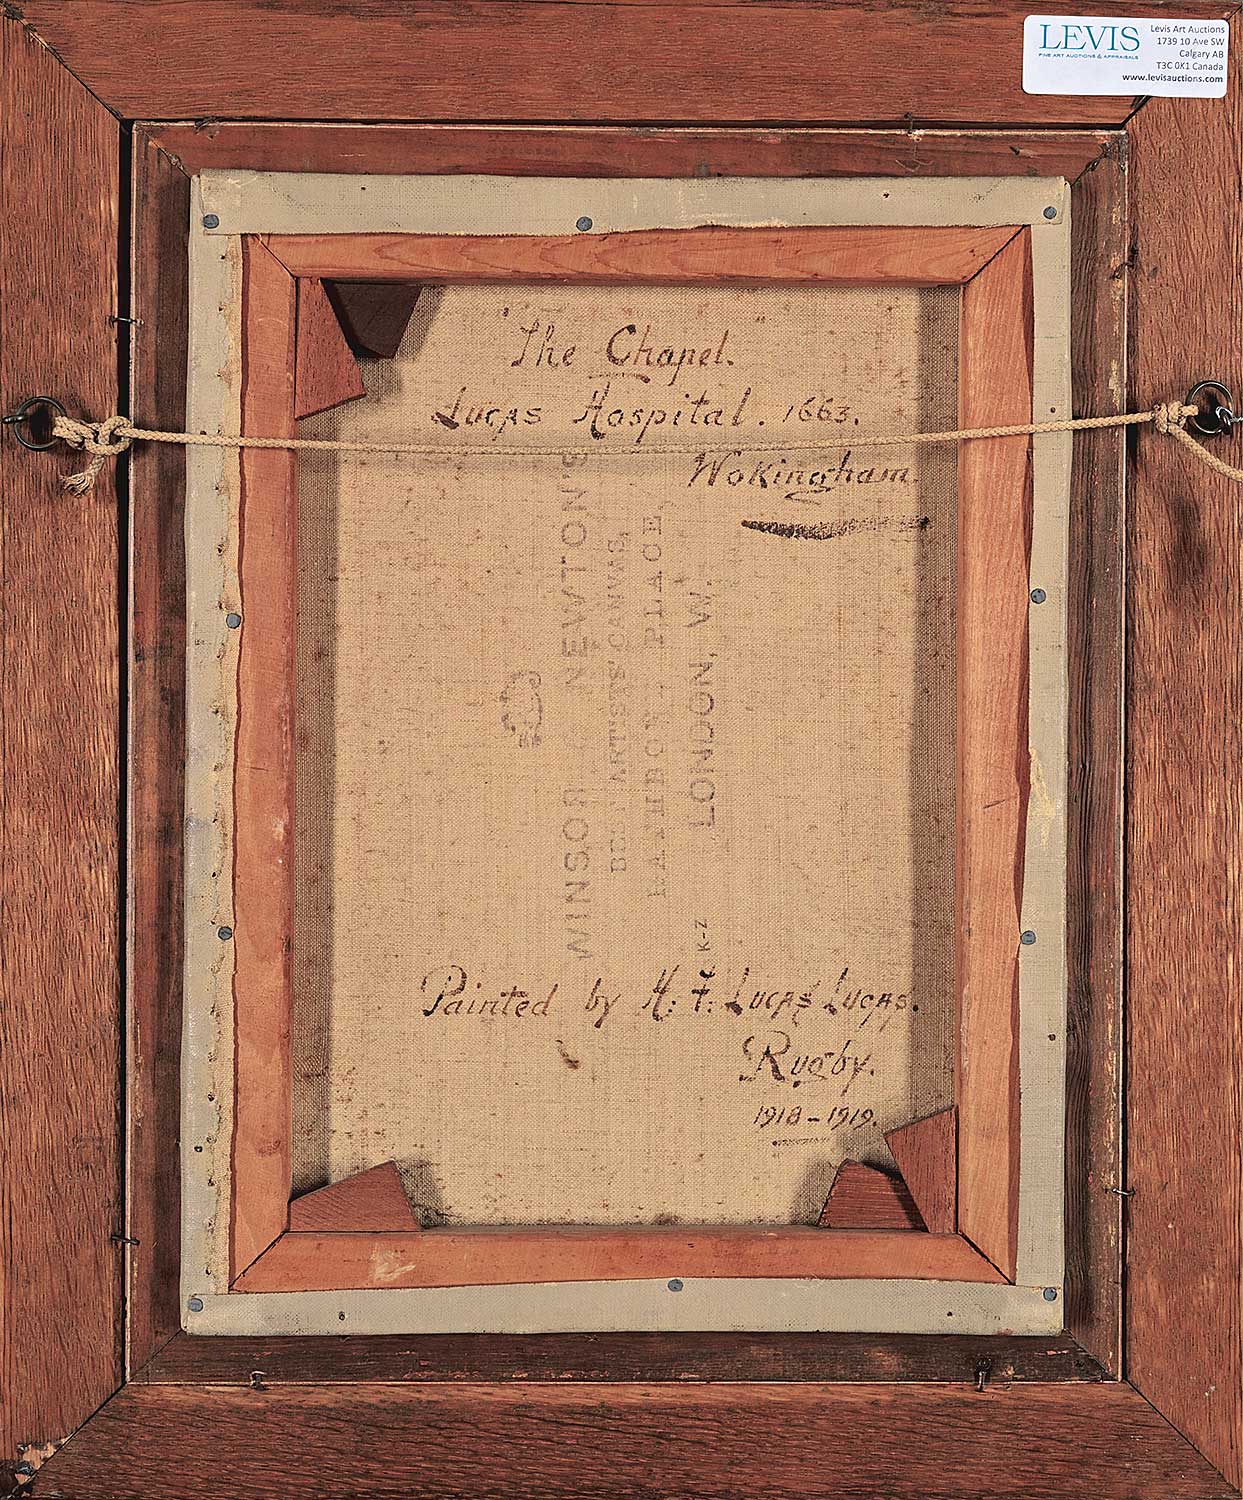 LEVIS
FINE ART AUCTIONS & APPRAISALS
Levis Art Auctions
1739 10 Ave SW
Calgary AB
T3C 0K1 Canada
www.levisauctions.com
"The Chapel."
Lucas Hospital. 1663.
Wokingham.
WINSOR & NEWTON'S
BEST ARTISTS' CANVAS,
RATHBONE PLACE,
LONDON, W.
K-Z
Painted by H. F. Lucas Lucas.
Rugby.
1918-1919.